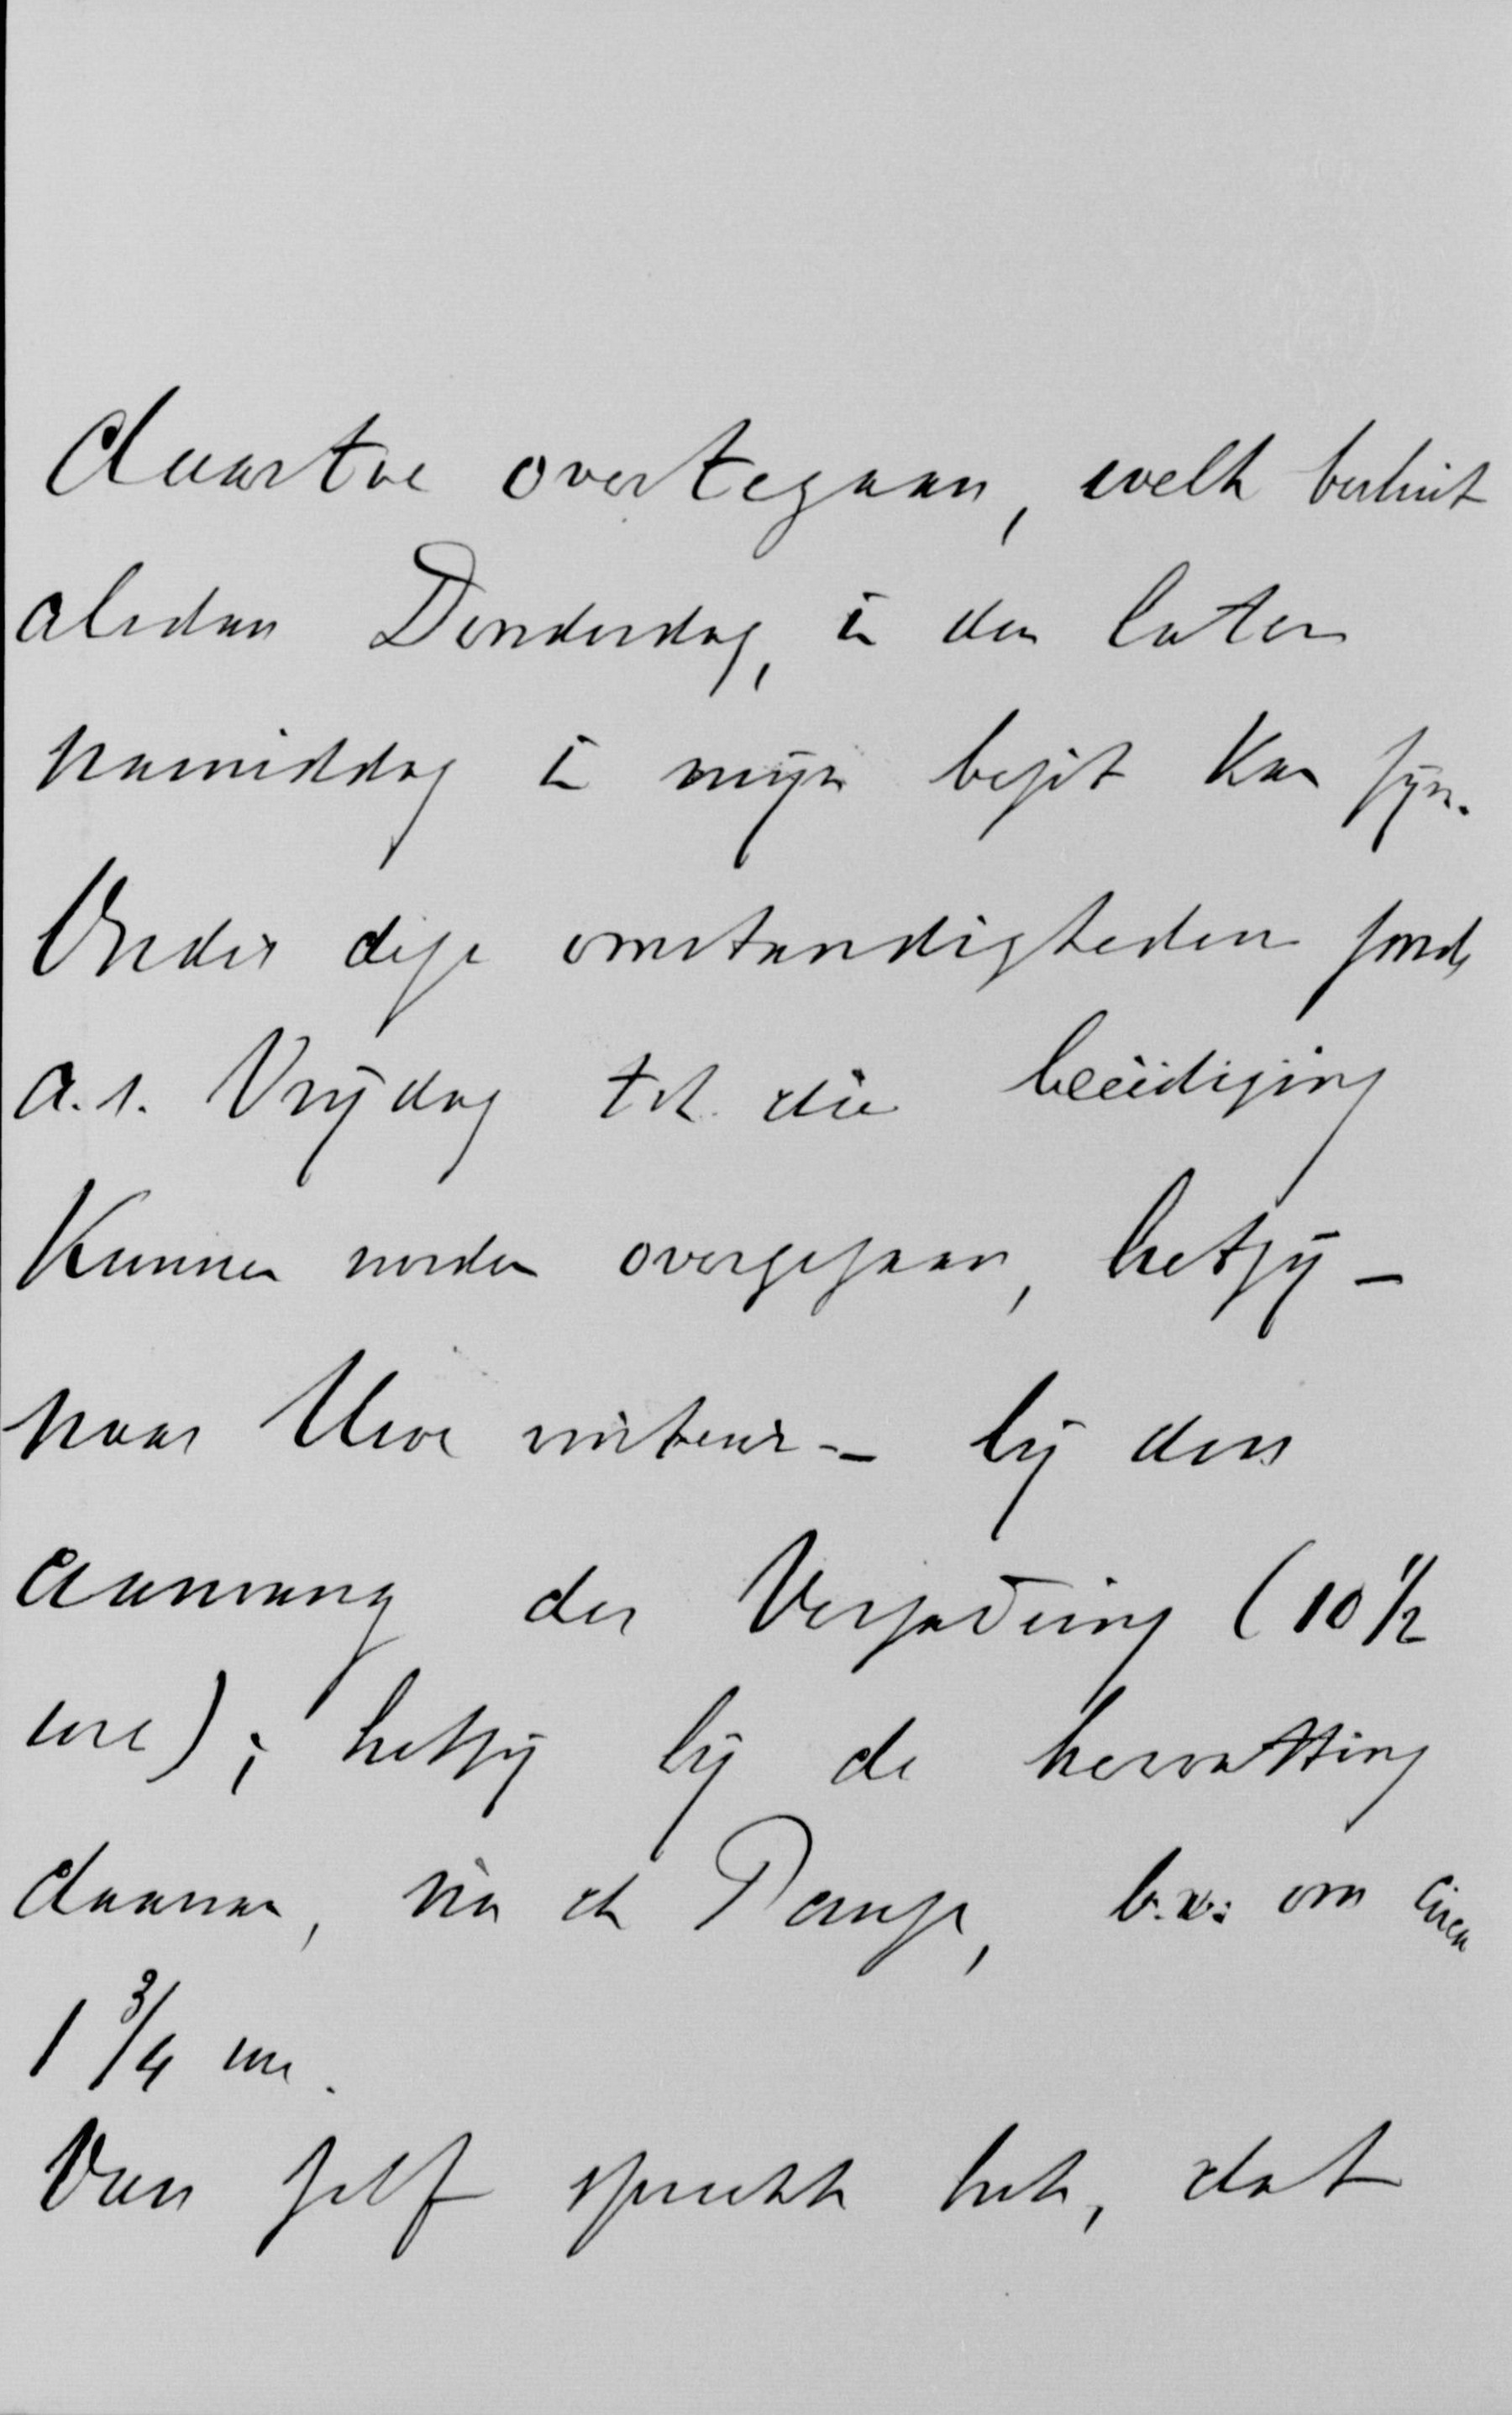 daartoe overtegaan, welk besluit
alsdan Donderdag, in den laten
namiddag in mijn bezit kan zijn.
Onder deze omstandigheden zoude
a.s. Vrijdag tot die beëediging
kunnen worden overgegaan, hetzij –
naar Uwe –– bij den
aanvang der Vergadering (10 1/2
ure); hetzij bij de hervatting
daarvan, na de Pauze, b.v: om circa
1 3/4 ure.
Van zelf spreekt het, dat